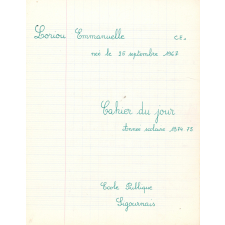 Loriou Emmanuelle C.E.
née le 25 septembre 1967
Cahier du jour
Année scolaire 1974 75
Ecole Publique
Sigournais